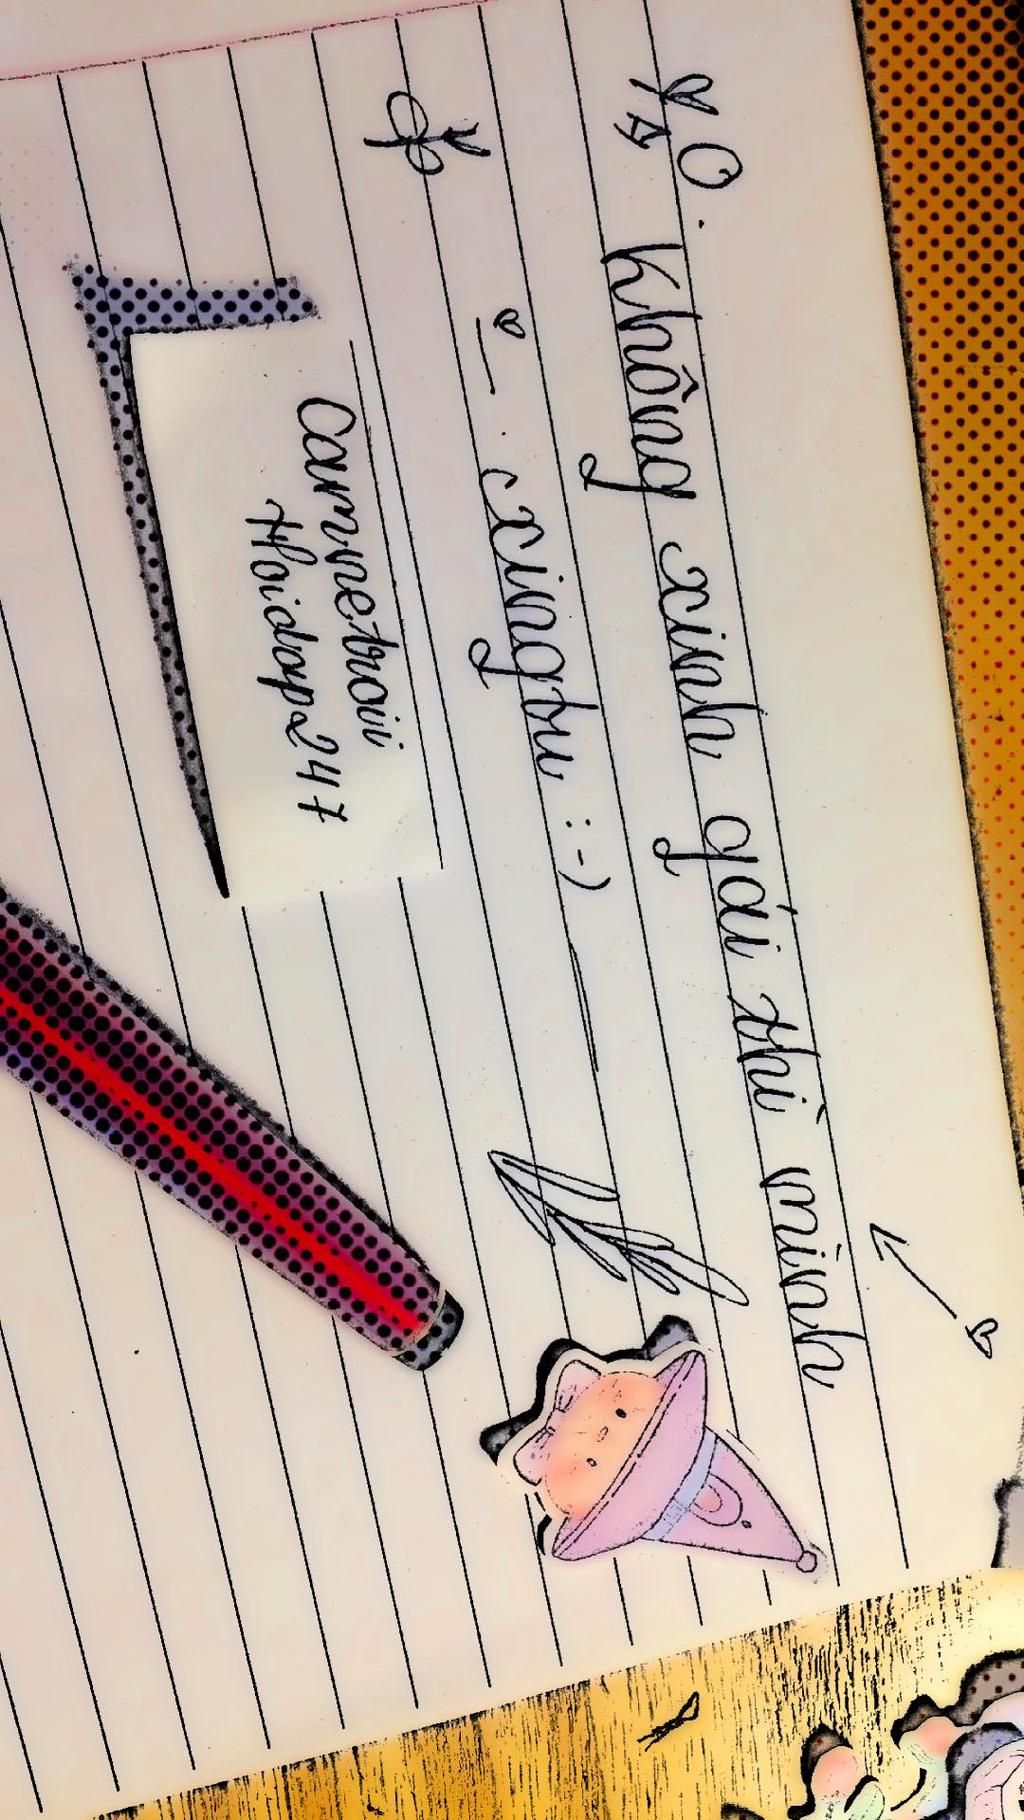 Không xinh gái thì mình
xingtu :-)
Carnetroii
Hoidap247